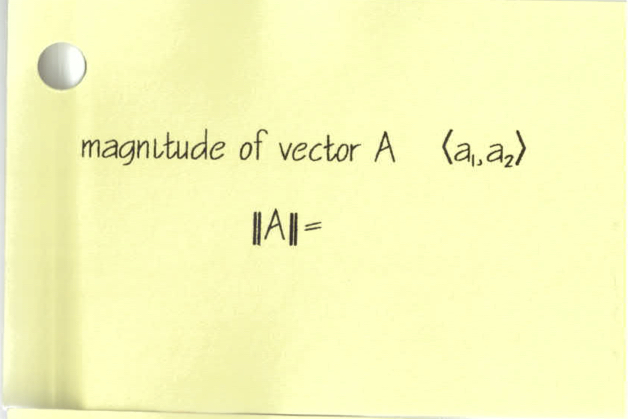 magnitude of vector A ⟨a₁, a₂⟩
||A|| =